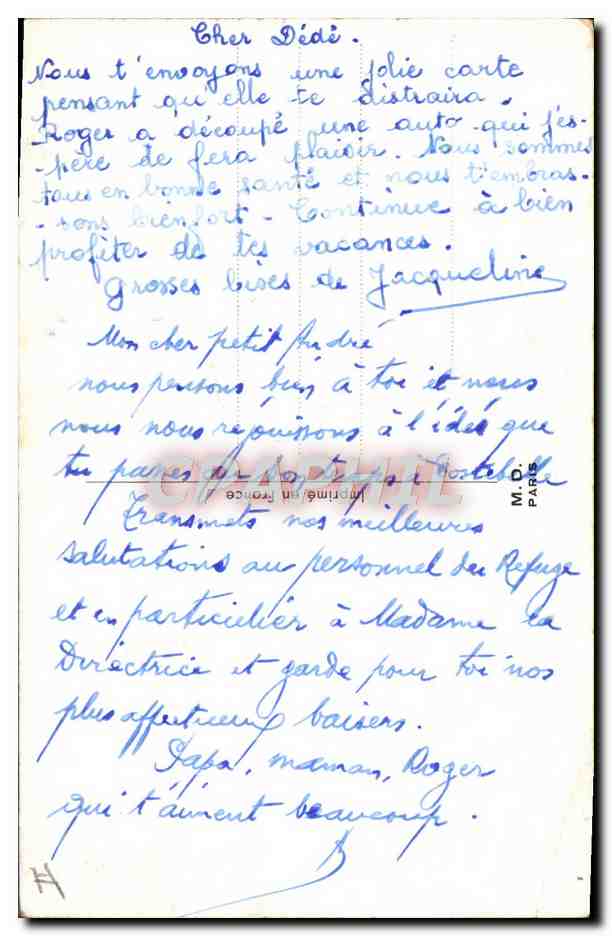 Cher Dédé.
Nous t'envoyons une jolie carte
pensant qu'elle te distraira.
Roger a découpé une auto qui j'es-
-père de fera plaisir. Nous sommes
tous en bonne santé et nous t'embras-
-sons bien fort - Continue à bien
profiter de tes vacances.
Grosses bises de Jacqueline
Mon cher petit André
nous pensons bien à toi et nous
nous nous réjouissons à l'idée que
tu passes du bon temps à Costebelle
Transmets nos meilleures
salutations au personnel du Refuge
et en particulier à Madame la
Directrice et garde pour toi nos
plus affectueux baisers.
Papa, maman, Roger
qui t'aiment beaucoup.
Imprimé en France
M.D.
PARIS
CPAPHIL